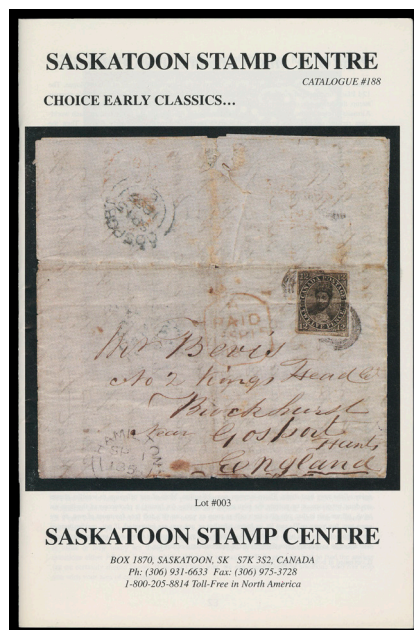 SASKATOON STAMP CENTRE
CATALOGUE #188
CHOICE EARLY CLASSICS...
PAID
Mr Bevis
No 2 Kings Head
Brockhurst
Near Gosport
Hants
England
Lot #003
SASKATOON STAMP CENTRE
BOX 1870, SASKATOON, SK S7K 3S2, CANADA
Ph: (306) 931-6633 Fax: (306) 975-3728
1-800-205-8814 Toll-Free in North America